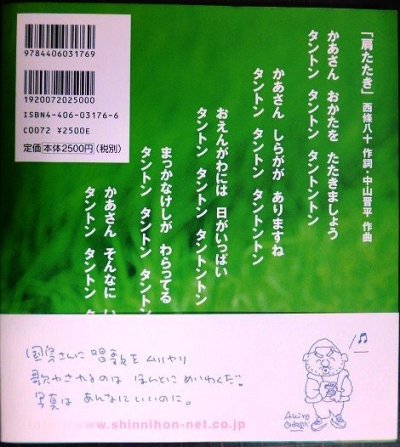 9784406031769
1920072025000
ISBN4-406-03176-6
C0072 ¥2500E
定価 本体2500円(税別)
「肩たたき」 西條八十 作詞・中山晋平 作曲
かあさん おかたを たたきましょう
タントン タントン タントントン
かあさん しらがが ありますね
タントン タントン タントントン
おえんがわには 日がいっぱい
タントン タントン タントントン
まっかなけしが わらってる
タントン タントン タントントン
かあさん そんなに い
タントン タントン タ
国実さんに唱歌をムリヤリ
歌わされるのは ほんとにめいわくだ。
写真は あんなにいいのに。
www.shinnihon-net.co.jp